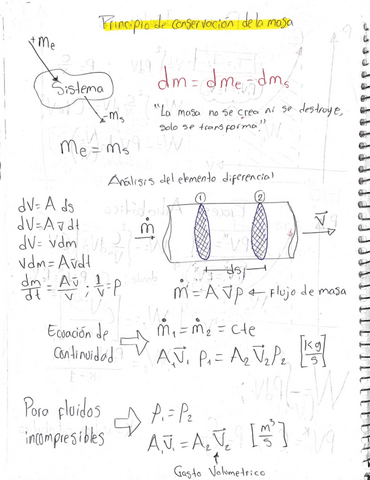 Principio de conservación de la masa
+me
Sistema
-ms
dm = dme - dms
"La masa no se crea ni se destruye,
solo se transforma"
me = ms
Análisis del elemento diferencial
dV = A ds
dV = A v̄ dt
dV = vdm
vdm = Av̄dt
dm/dt = Av̄/v ; 1/v = ρ
① ②
ṁ
v⃗
ds
ṁ = A v⃗ ρ ← Flujo de masa
Ecuación de
Continuidad
ṁ₁ = ṁ₂ = cte
A₁v⃗₁ ρ₁ = A₂ v⃗₂ρ₂ [Kg/s]
Para fluidos
incompresibles
ρ₁ = ρ₂
A₁v⃗₁ = A₂ v⃗₂ [m³/s]
Gasto Volumetrico